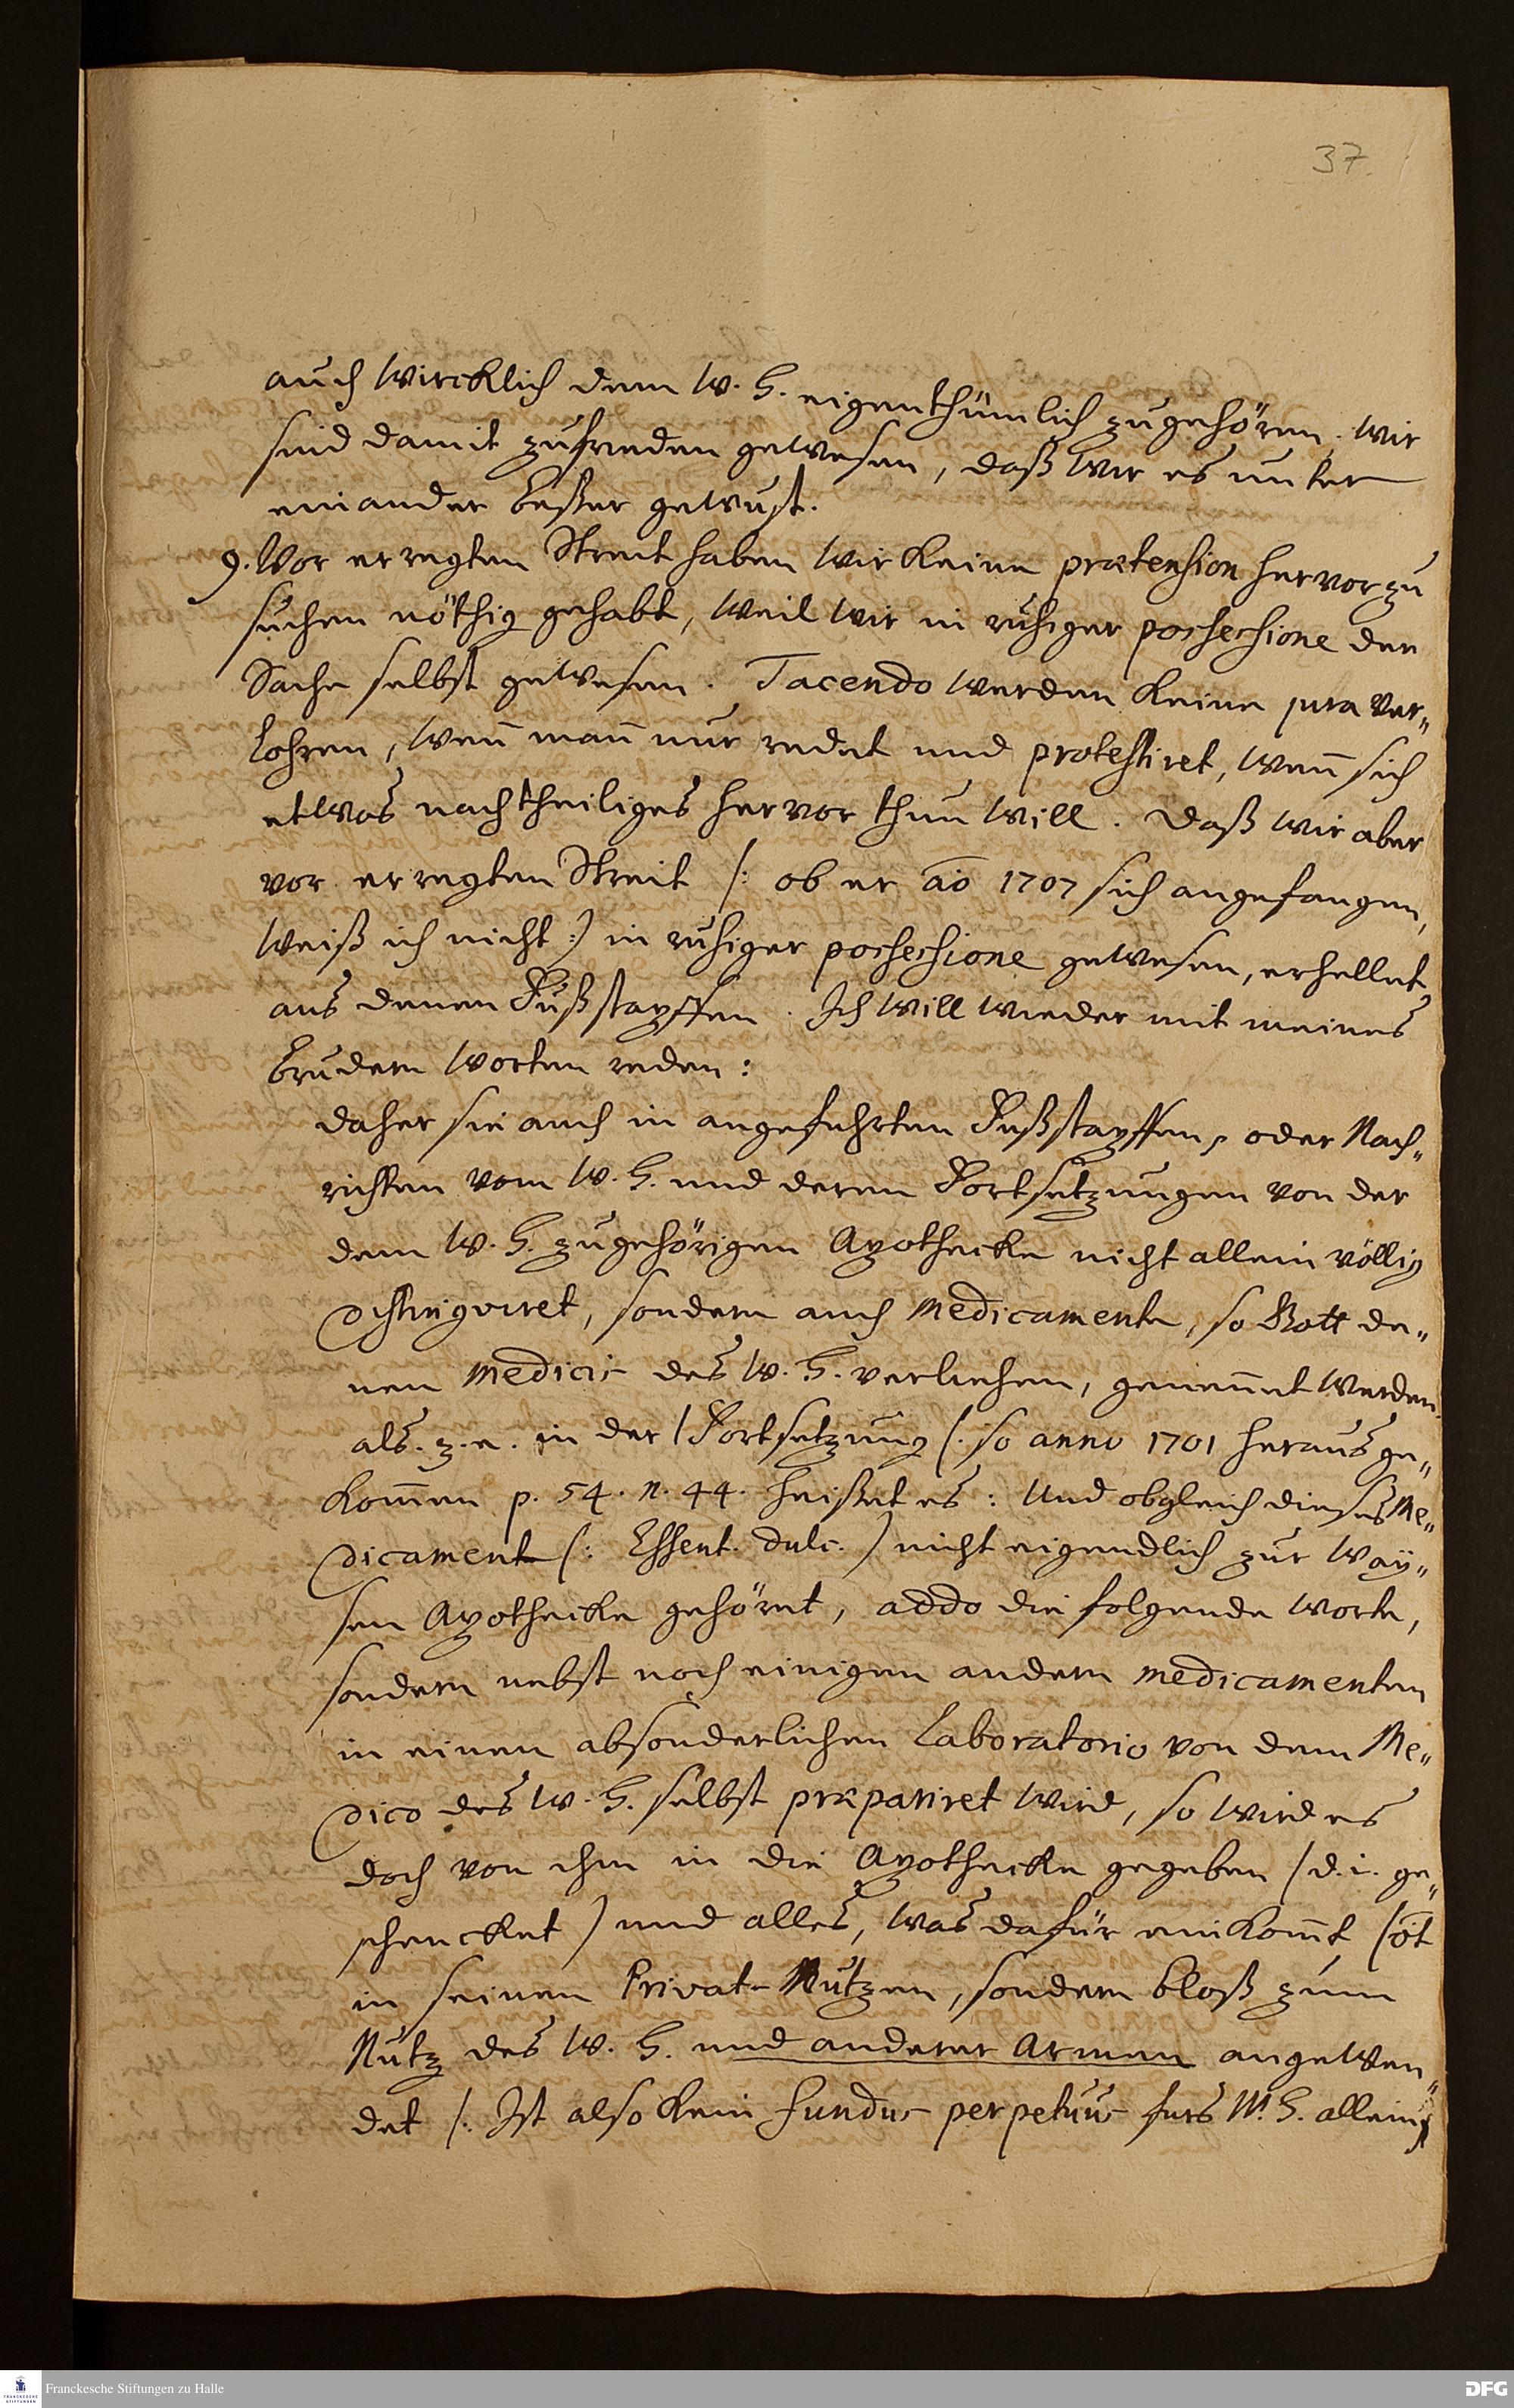 37.
auch wircklich dem W. H. eigenthümlich zugehören. Wir
sind damit zufrieden gewesen, daß wir es unter
einander beßer gewust.
9. Vor erregten Streit haben wir keine prætension hervor zu
suchen nöthig gehabt, weil wir in ruhiger possessione der
Sache selbst gewesen. Tacendo werden keine jura ver„
lohren, wenn mann nur redet und protestiret, wenn sich
etwas nachtheiliges hervor thun will. Daß wir aber
vor erregten Streit /: ob er ao 1707 sich angefangen,
weiß ich nicht :) in ruhiger possessione gewesen, erhellet
aus denen Fußstapffen. Ich will wieder mit meines
Brudern Worten reden:
daher sie auch in angeführten Fußstapffen, oder Nach„
richten vom W. H. und deren Fortsetzungen von der
dem W. H. zugehörigen Apothecke nicht allein völlig
distingviret, sondern auch Medicamente, so Gott de„
nen Medicis des W. H. verliehen, genennet werden.
als. z. e. in der Fortsetzung /. so anno 1701 heraus ge„
kommen p. 54. n. 44. heißet es: Und obgleich dieses Me„
dicament (: Essent. dulc.) nicht eigendlich zur Way„
sen Apothecke gehöret, addo die folgende Worte,
sondern nebst noch einigen andern Medicamenten
in einen absonderlichen Laboratorio von dem Me„
dico des W. H. selbst præpariret wird, so wird es
doch von ihm in die Apothecke gegeben (d. i. ge„
schencket) und alles, was dafür einkommt, (öt
in seinen Privat-Nutzen, sondern bloß zum
Nutz des W. H. und anderer Armen angewen„
det /: Ist also kein fundus perpetuus furs W. H. allein)
Franckesche Stiftungen zu Halle
DFG